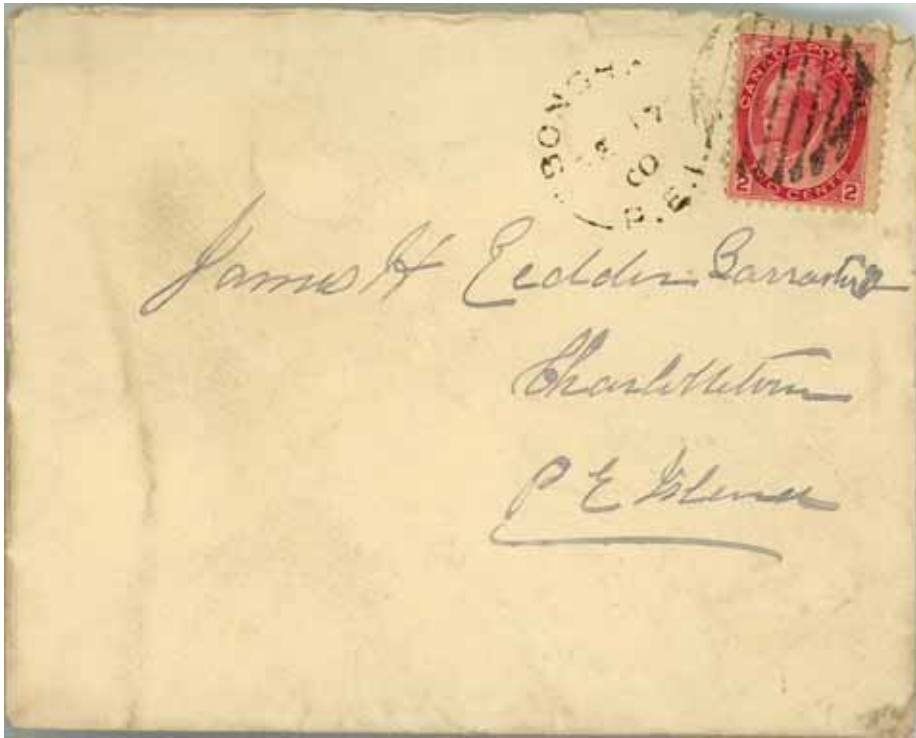 CANADA POSTAGE
2 TWO CENTS 2
00
P.E.I.
James H Reddin Barrister
Charlottetown
P E Island